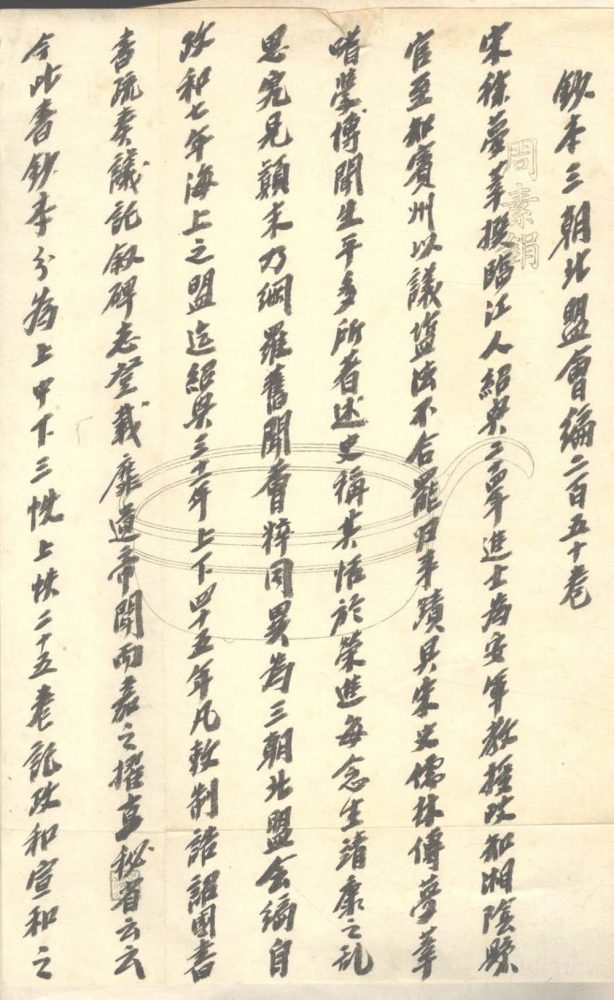 鈔本三朝北盟會編二百五十卷
宋徐夢莘撰臨江人紹興二十四年進士為安軍教授改知湘陰縣
官至知賓州以議盐法不合罷归事蹟具宋史儒林傳夢莘
嗜學博聞生平多所著述史稱其恬於榮進每念生靖康之亂
思究見顛末乃網羅舊聞會粹同異為三朝北盟会編自
政和七年海上之盟迄紹興三十一年上下四十五年凡敕制誥詔國書
書疏奏議記叙碑志登載靡遺帝聞而嘉之擢直秘省云云
今此書鈔本分為上中下三帙上帙二十五卷記政和宣和之
周素絹